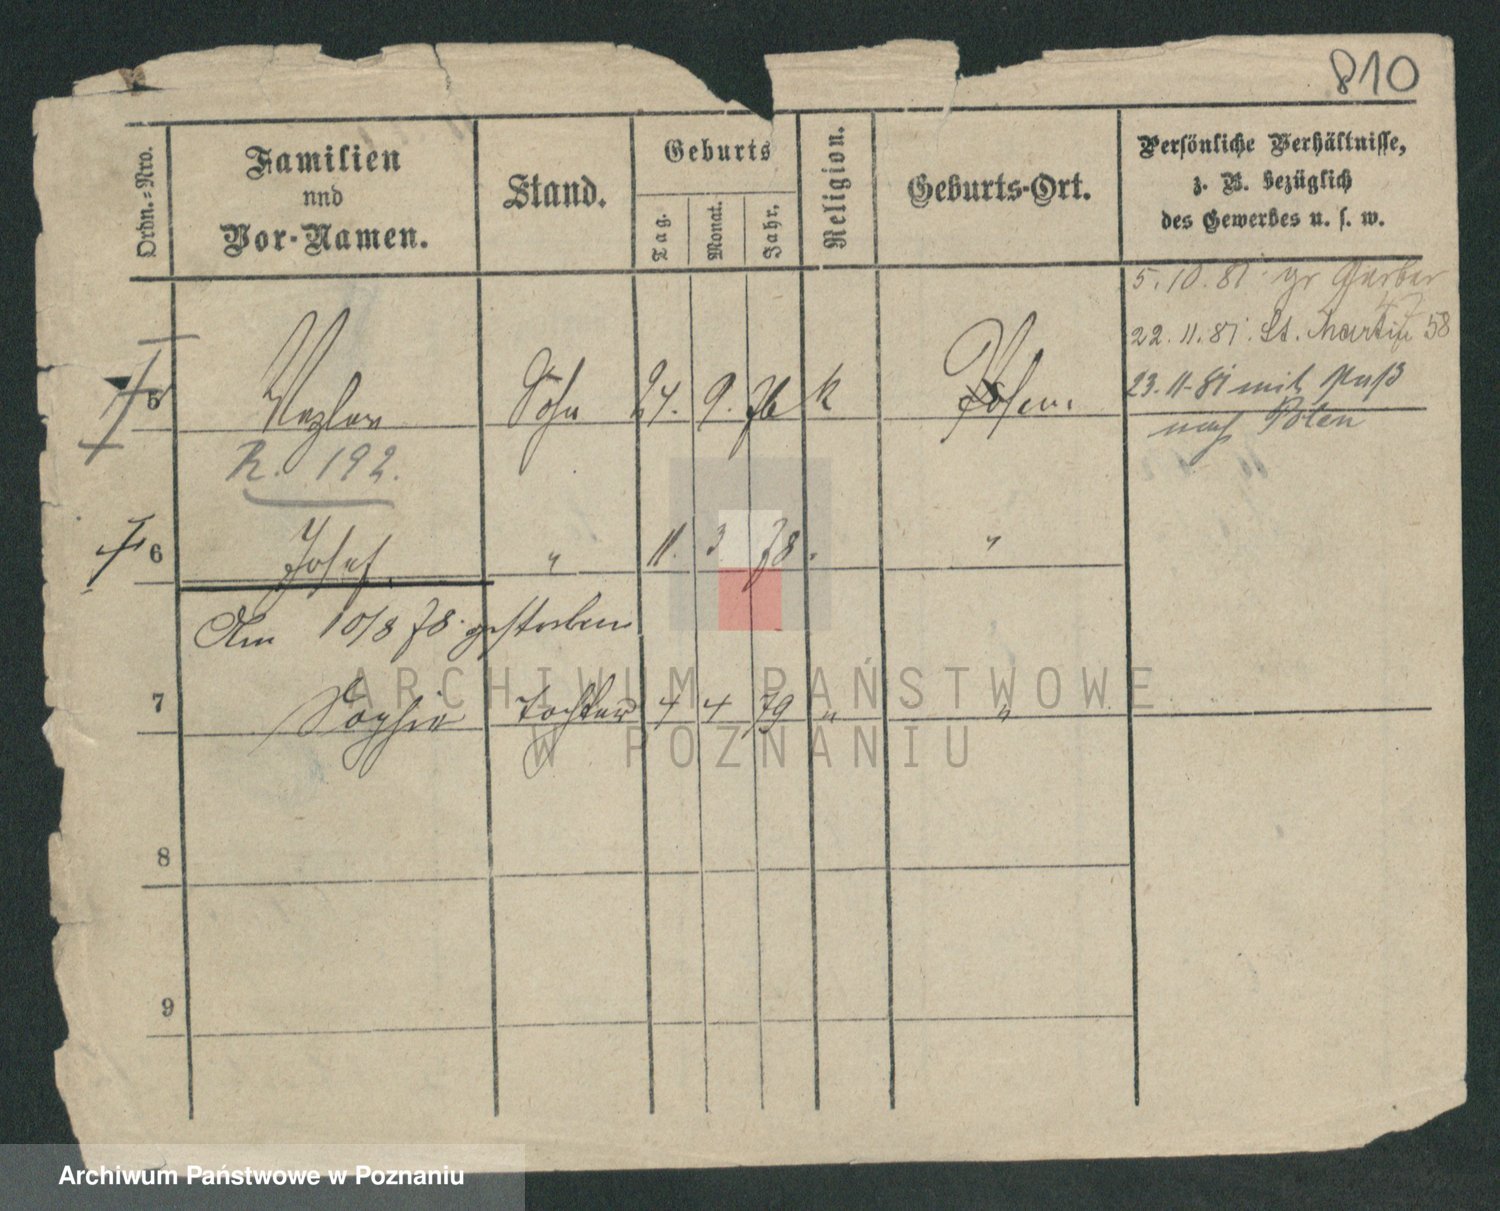 810
Ordn.-Nro.
Familien
nnd
Vor-Namen.
Stand.
Geburts
Tag.
Monat.
Jahr.
Religion.
Geburts-Ort.
Persönliche Verhältnisse,
z. B. bezüglich
des Gewerbes u. s. w.
5.10.81. gr Gerber
47
22.11.81. St. Martin 58
23.11.81 mit Paß
nach Polen
5 Sohn 24. 9. 76 k Posen.
R. 192.
6 Josef " 11. 3 78. "
Am 10/8 78. gestorben
7 Sophie Tochter 4 4 79 " "
8
9
ARCHIWUM PAŃSTWOWE
W POZNANIU
Archiwum Państwowe w Poznaniu